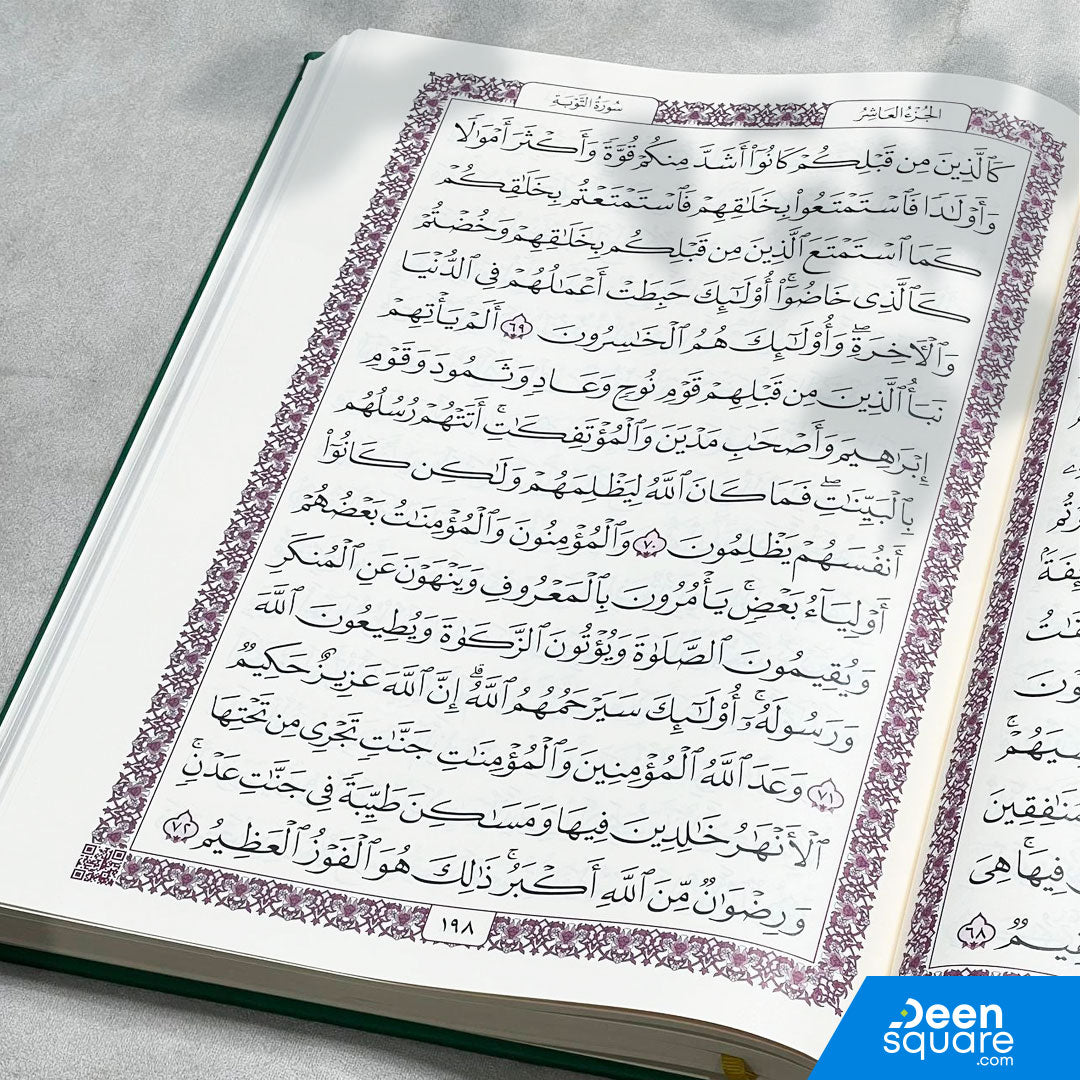 الجُزْءُ العَاشِرُ
سُورَةُ التَّوْبَةِ
كَٱلَّذِينَ مِن قَبْلِكُمْ كَانُوٓا۟ أَشَدَّ مِنكُمْ قُوَّةً وَأَكْثَرَ أَمْوَٰلًا
وَأَوْلَٰدًا فَٱسْتَمْتَعُوا۟ بِخَلَٰقِهِمْ فَٱسْتَمْتَعْتُم بِخَلَٰقِكُمْ
كَمَا ٱسْتَمْتَعَ ٱلَّذِينَ مِن قَبْلِكُم بِخَلَٰقِهِمْ وَخُضْتُمْ
كَٱلَّذِى خَاضُوٓا۟ۚ أُو۟لَٰٓئِكَ حَبِطَتْ أَعْمَٰلُهُمْ فِى ٱلدُّنْيَا
وَٱلْءَاخِرَةِۖ وَأُو۟لَٰٓئِكَ هُمُ ٱلْخَٰسِرُونَ ٦٩ أَلَمْ يَأْتِهِمْ
نَبَأُ ٱلَّذِينَ مِن قَبْلِهِمْ قَوْمِ نُوحٍ وَعَادٍ وَثَمُودَ وَقَوْمِ
إِبْرَٰهِيمَ وَأَصْحَٰبِ مَدْيَنَ وَٱلْمُؤْتَفِكَٰتِۚ أَتَتْهُمْ رُسُلُهُم
بِٱلْبَيِّنَٰتِۖ فَمَا كَانَ ٱللَّهُ لِيَظْلِمَهُمْ وَلَٰكِن كَانُوٓا۟
أَنفُسَهُمْ يَظْلِمُونَ ٧٠ وَٱلْمُؤْمِنُونَ وَٱلْمُؤْمِنَٰتُ بَعْضُهُمْ
أَوْلِيَآءُ بَعْضٍۚ يَأْمُرُونَ بِٱلْمَعْرُوفِ وَيَنْهَوْنَ عَنِ ٱلْمُنكَرِ
وَيُقِيمُونَ ٱلصَّلَوٰةَ وَيُؤْتُونَ ٱلزَّكَوٰةَ وَيُطِيعُونَ ٱللَّهَ
وَرَسُولَهُۥٓۚ أُو۟لَٰٓئِكَ سَيَرْحَمُهُمُ ٱللَّهُۗ إِنَّ ٱللَّهَ عَزِيزٌ حَكِيمٌ
٧١ وَعَدَ ٱللَّهُ ٱلْمُؤْمِنِينَ وَٱلْمُؤْمِنَٰتِ جَنَّٰتٍ تَجْرِى مِن تَحْتِهَا
ٱلْأَنْهَٰرُ خَٰلِدِينَ فِيهَا وَمَسَٰكِنَ طَيِّبَةً فِى جَنَّٰتِ عَدْنٍۚ
وَرِضْوَٰنٌ مِّنَ ٱللَّهِ أَكْبَرُۚ ذَٰلِكَ هُوَ ٱلْفَوْزُ ٱلْعَظِيمُ ٧٢
١٩٨
فِيهَا هِىَ
٦٨
Deen
square
.com